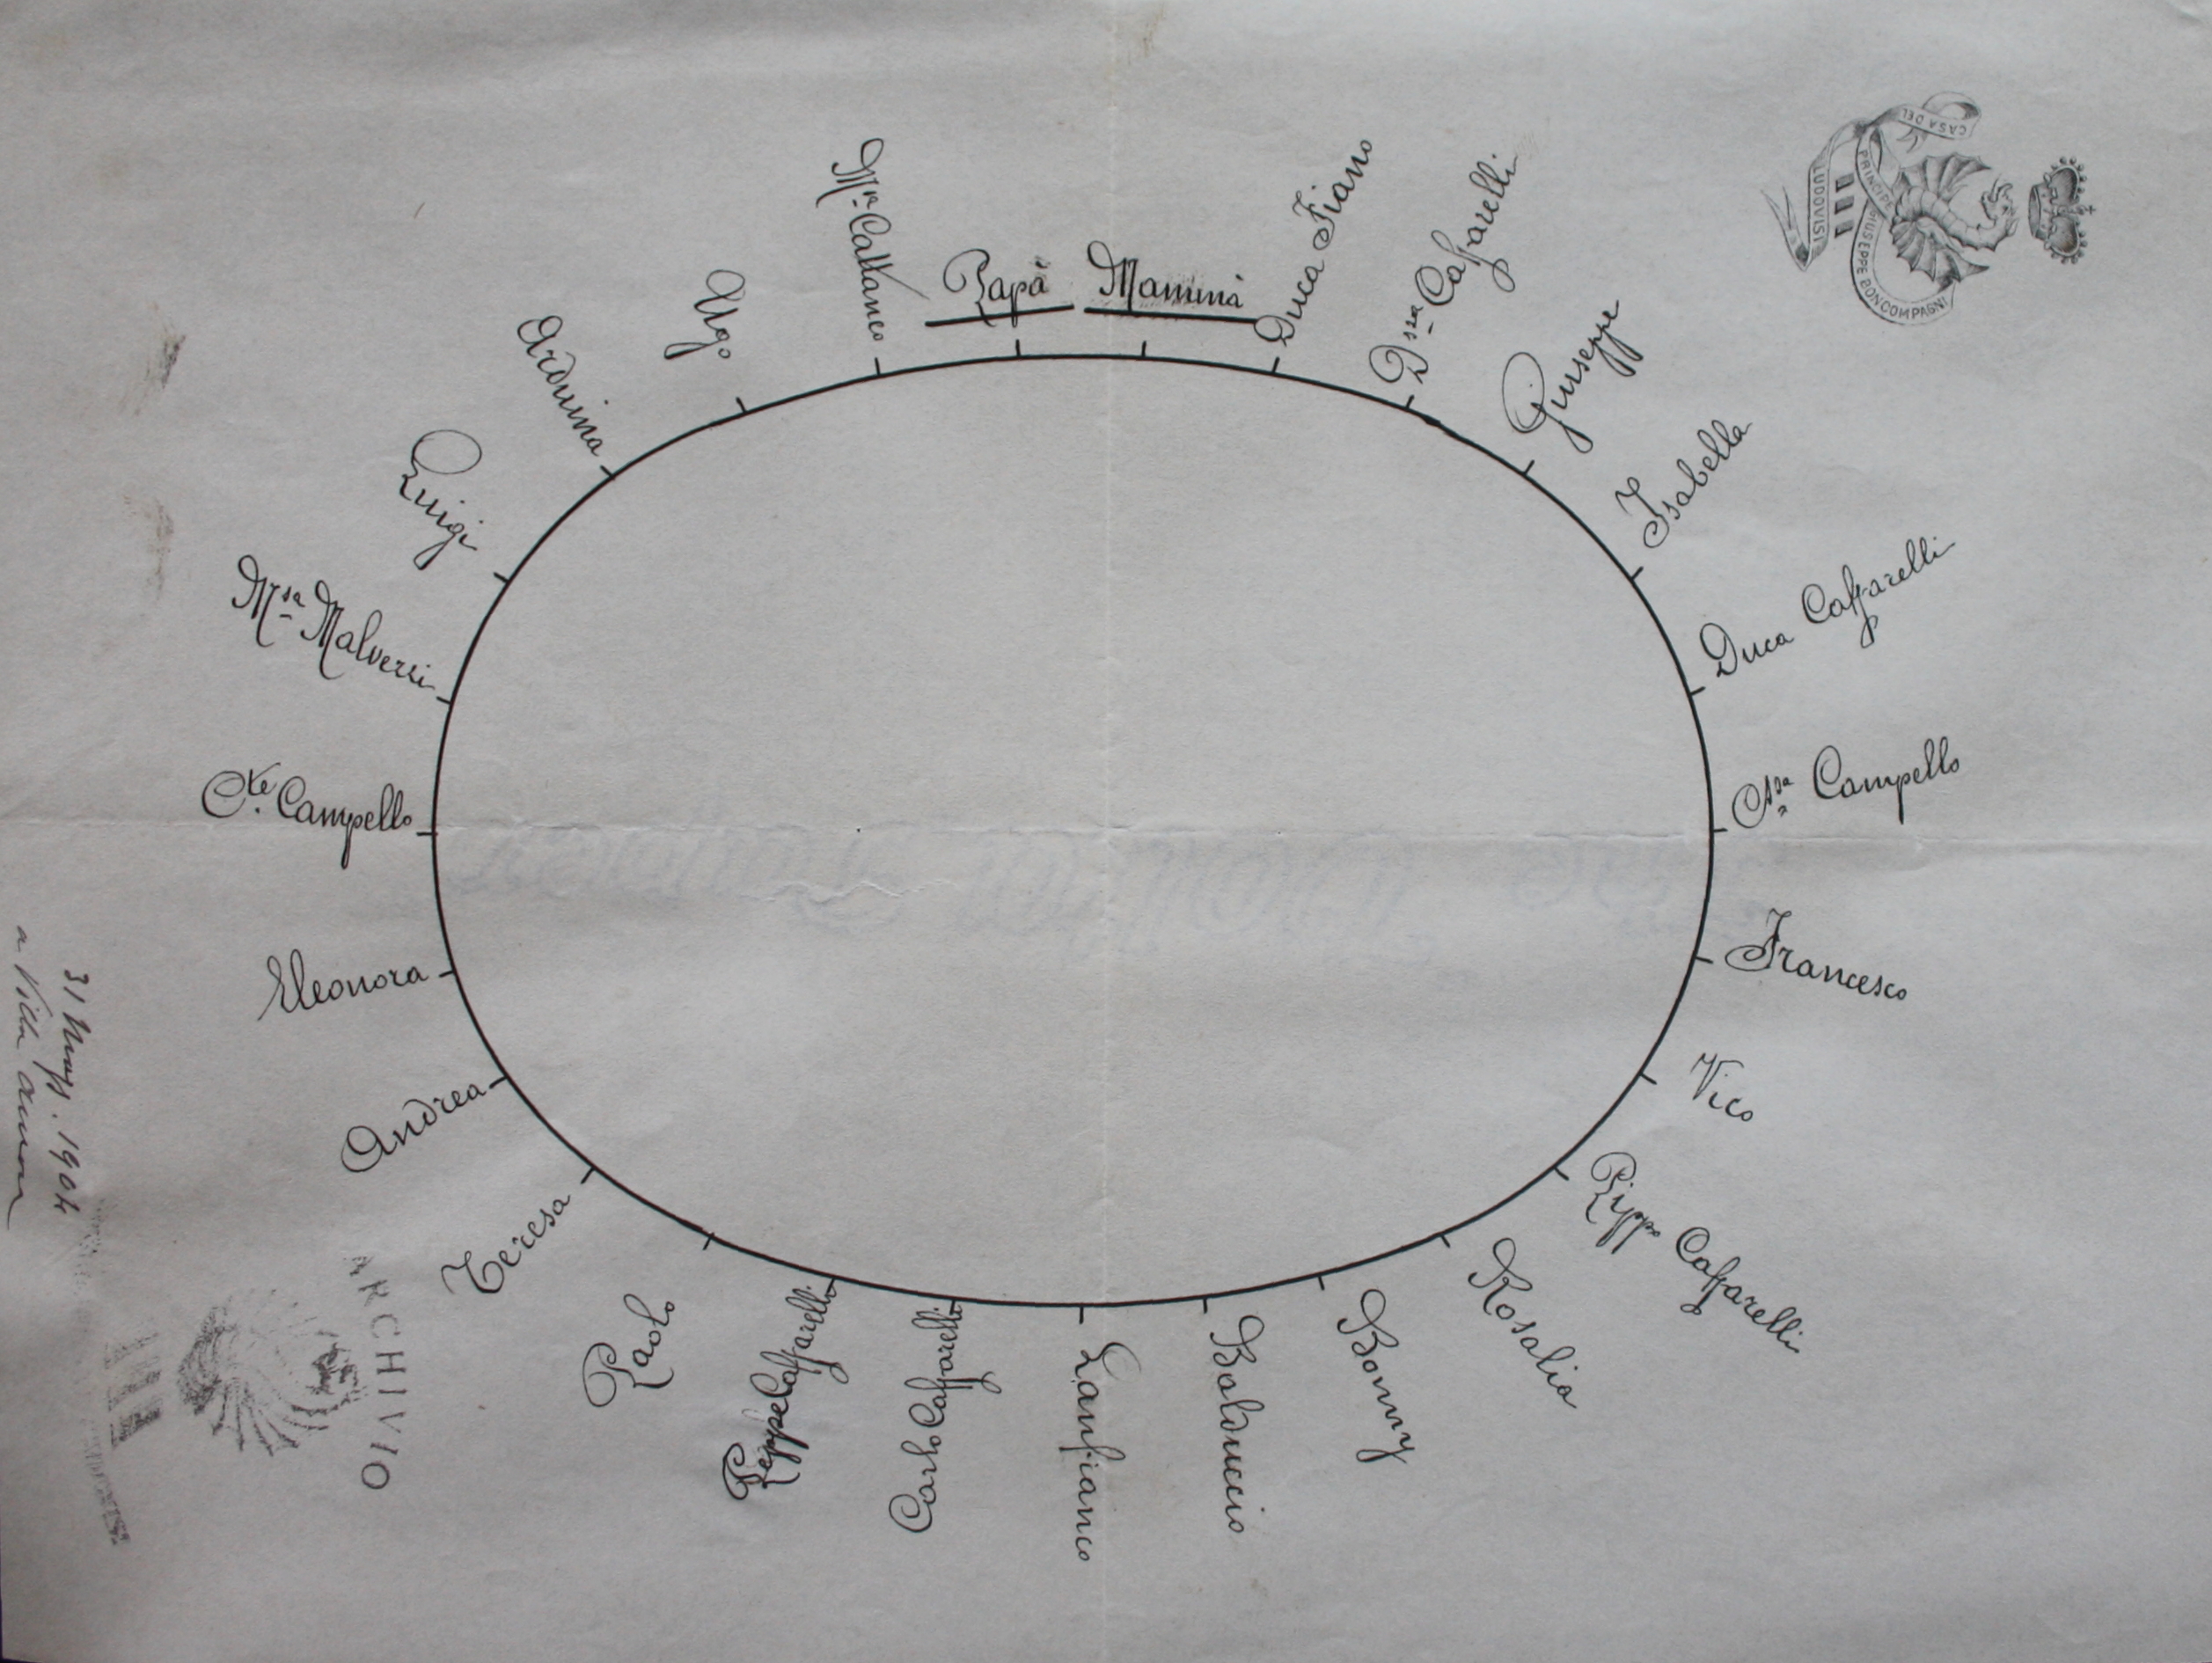 Papà
Mammà
Duca Fiano
D.ssa Caffarelli
Giuseppe
Isabella
Duca Caffarelli
C.ssa Campello
Francesco
Vico
Pippo Caffarelli
Rosalia
Bonny
Balduccio
Lanfranco
Carlo Caffarelli
Peppe Caffarelli
Paolo
Teresa
Andrea
Eleonora
C.te Campello
M.sa Malvezzi
Luigi
Arduina
Ugo
CASA DEL
PRINCIPE GIUSEPPE BONCOMPAGNI
LUDOVISI
31 Magg. 1904
a Villa Aurora
ARCHIVIO